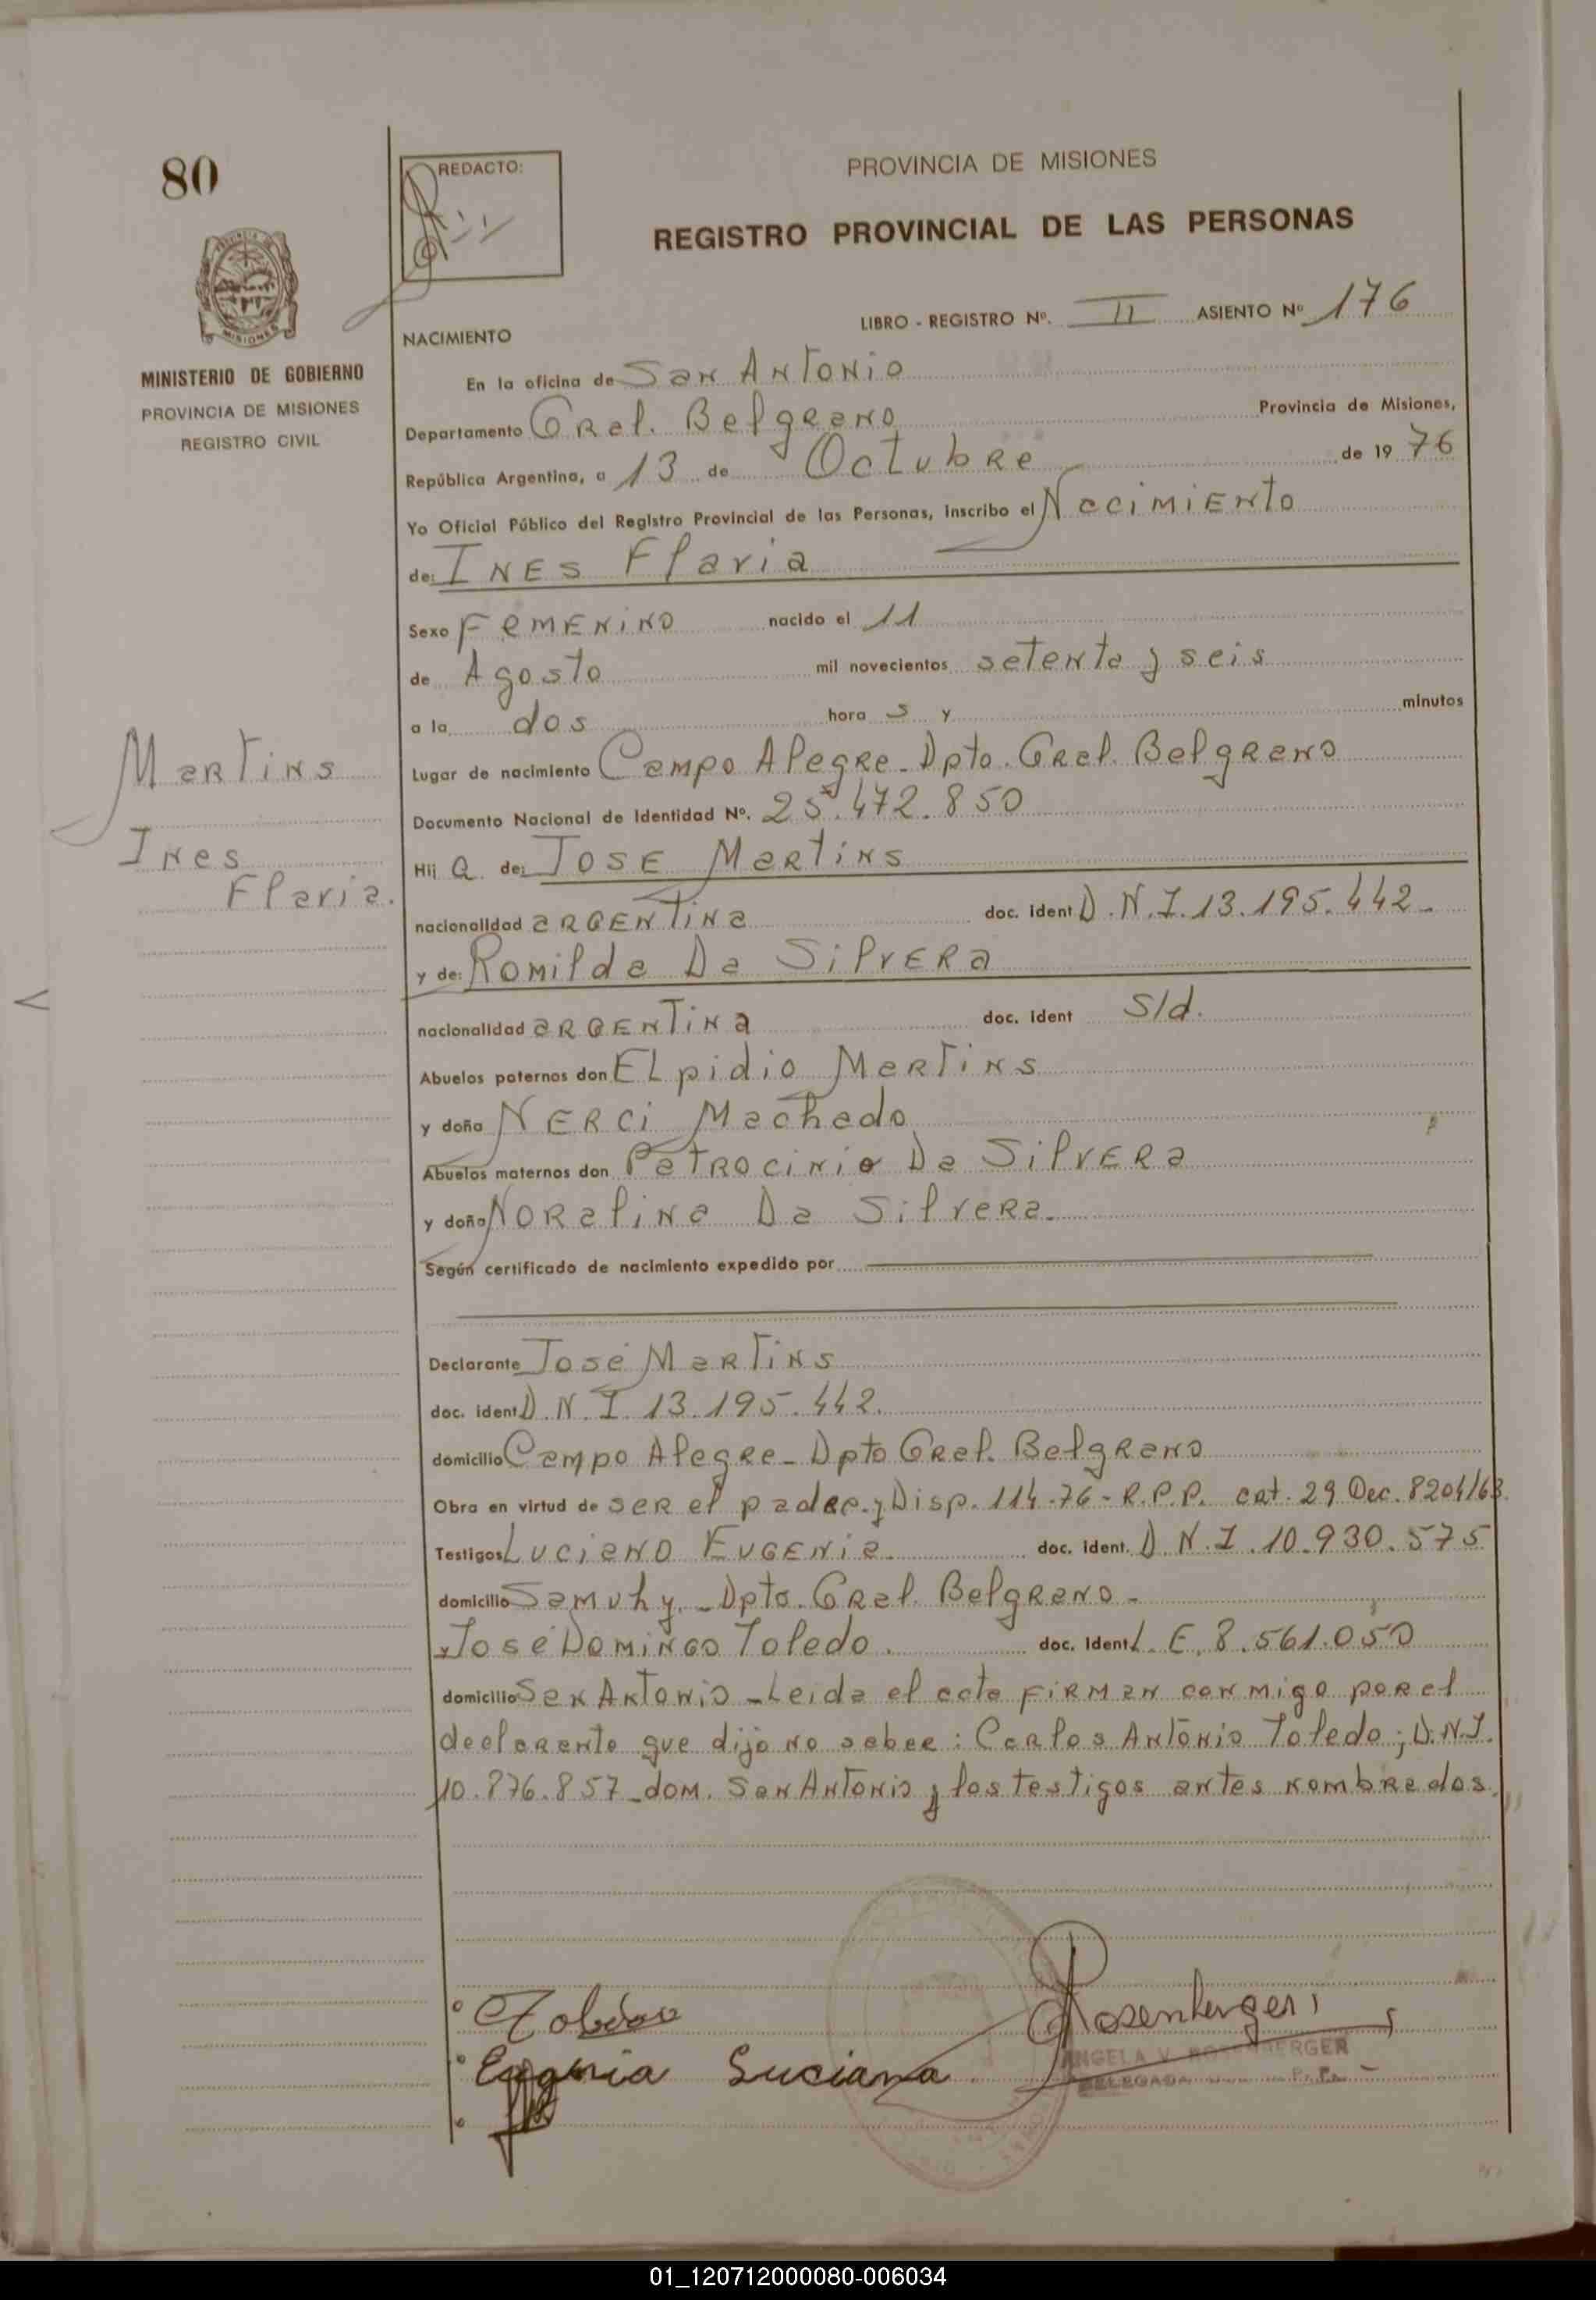 80
REDACTO:
PROVINCIA DE MISIONES
REGISTRO PROVINCIAL DE LAS PERSONAS
MISIONES
MINISTERIO DE GOBIERNO
PROVINCIA DE MISIONES
REGISTRO CIVIL
LIBRO - REGISTRO Nº. II ASIENTO Nº 176
NACIMIENTO
En la oficina de San Antonio
Departamento Gral. Belgrano Provincia de Misiones,
República Argentina, a 13 de Octubre de 1976
Yo Oficial Público del Registro Provincial de las Personas, inscribo el Nacimiento
de: INES Flavia
Sexo FEMENINO nacido el 11
de Agosto mil novecientos setenta y seis
a la dos hora s y minutos
Martins
Ines
Flavia.
Lugar de nacimiento Campo Alegre - Dpto. Gral. Belgrano
Documento Nacional de Identidad Nº. 25.472.850
Hij a de: JOSE Martins
nacionalidad argentina doc. ident D.N.I. 13.195.442.
y de: Romilda Da Silvera
nacionalidad argentina doc. ident S/d.
Abuelos paternos don Elpidio Martins
y doña NERCI Machado
Abuelos maternos don Patrocinio Da Silvera
y doña Noralina Da Silvera.
Según certificado de nacimiento expedido por
Declarante José Martins
doc. ident D.N.I. 13.195.442.
domicilio Campo Alegre - Dpto Gral. Belgrano
Obra en virtud de ser el padre y Disp. 114-76 - R.P.P. cat. 29 Dec. 8204/63.
Testigos Luciano Eugenia. doc. ident. D.N.I. 10.930.575
domicilio Samuhy. - Dpto. Gral. Belgrano -
y José Domingo Toledo. doc. ident L.E. 8.561.050
domicilio San Antonio - Leida el acta firman conmigo por el
declarante que dijo no saber: Carlos Antonio Toledo; D.N.I.
10.876.857 - dom. San Antonio y los testigos antes nombrados.
Toledo
Rosenberger
Eugenia Luciana
ANGELA V. ROSENBERGER
DELEGADA
01_120712000080-006034